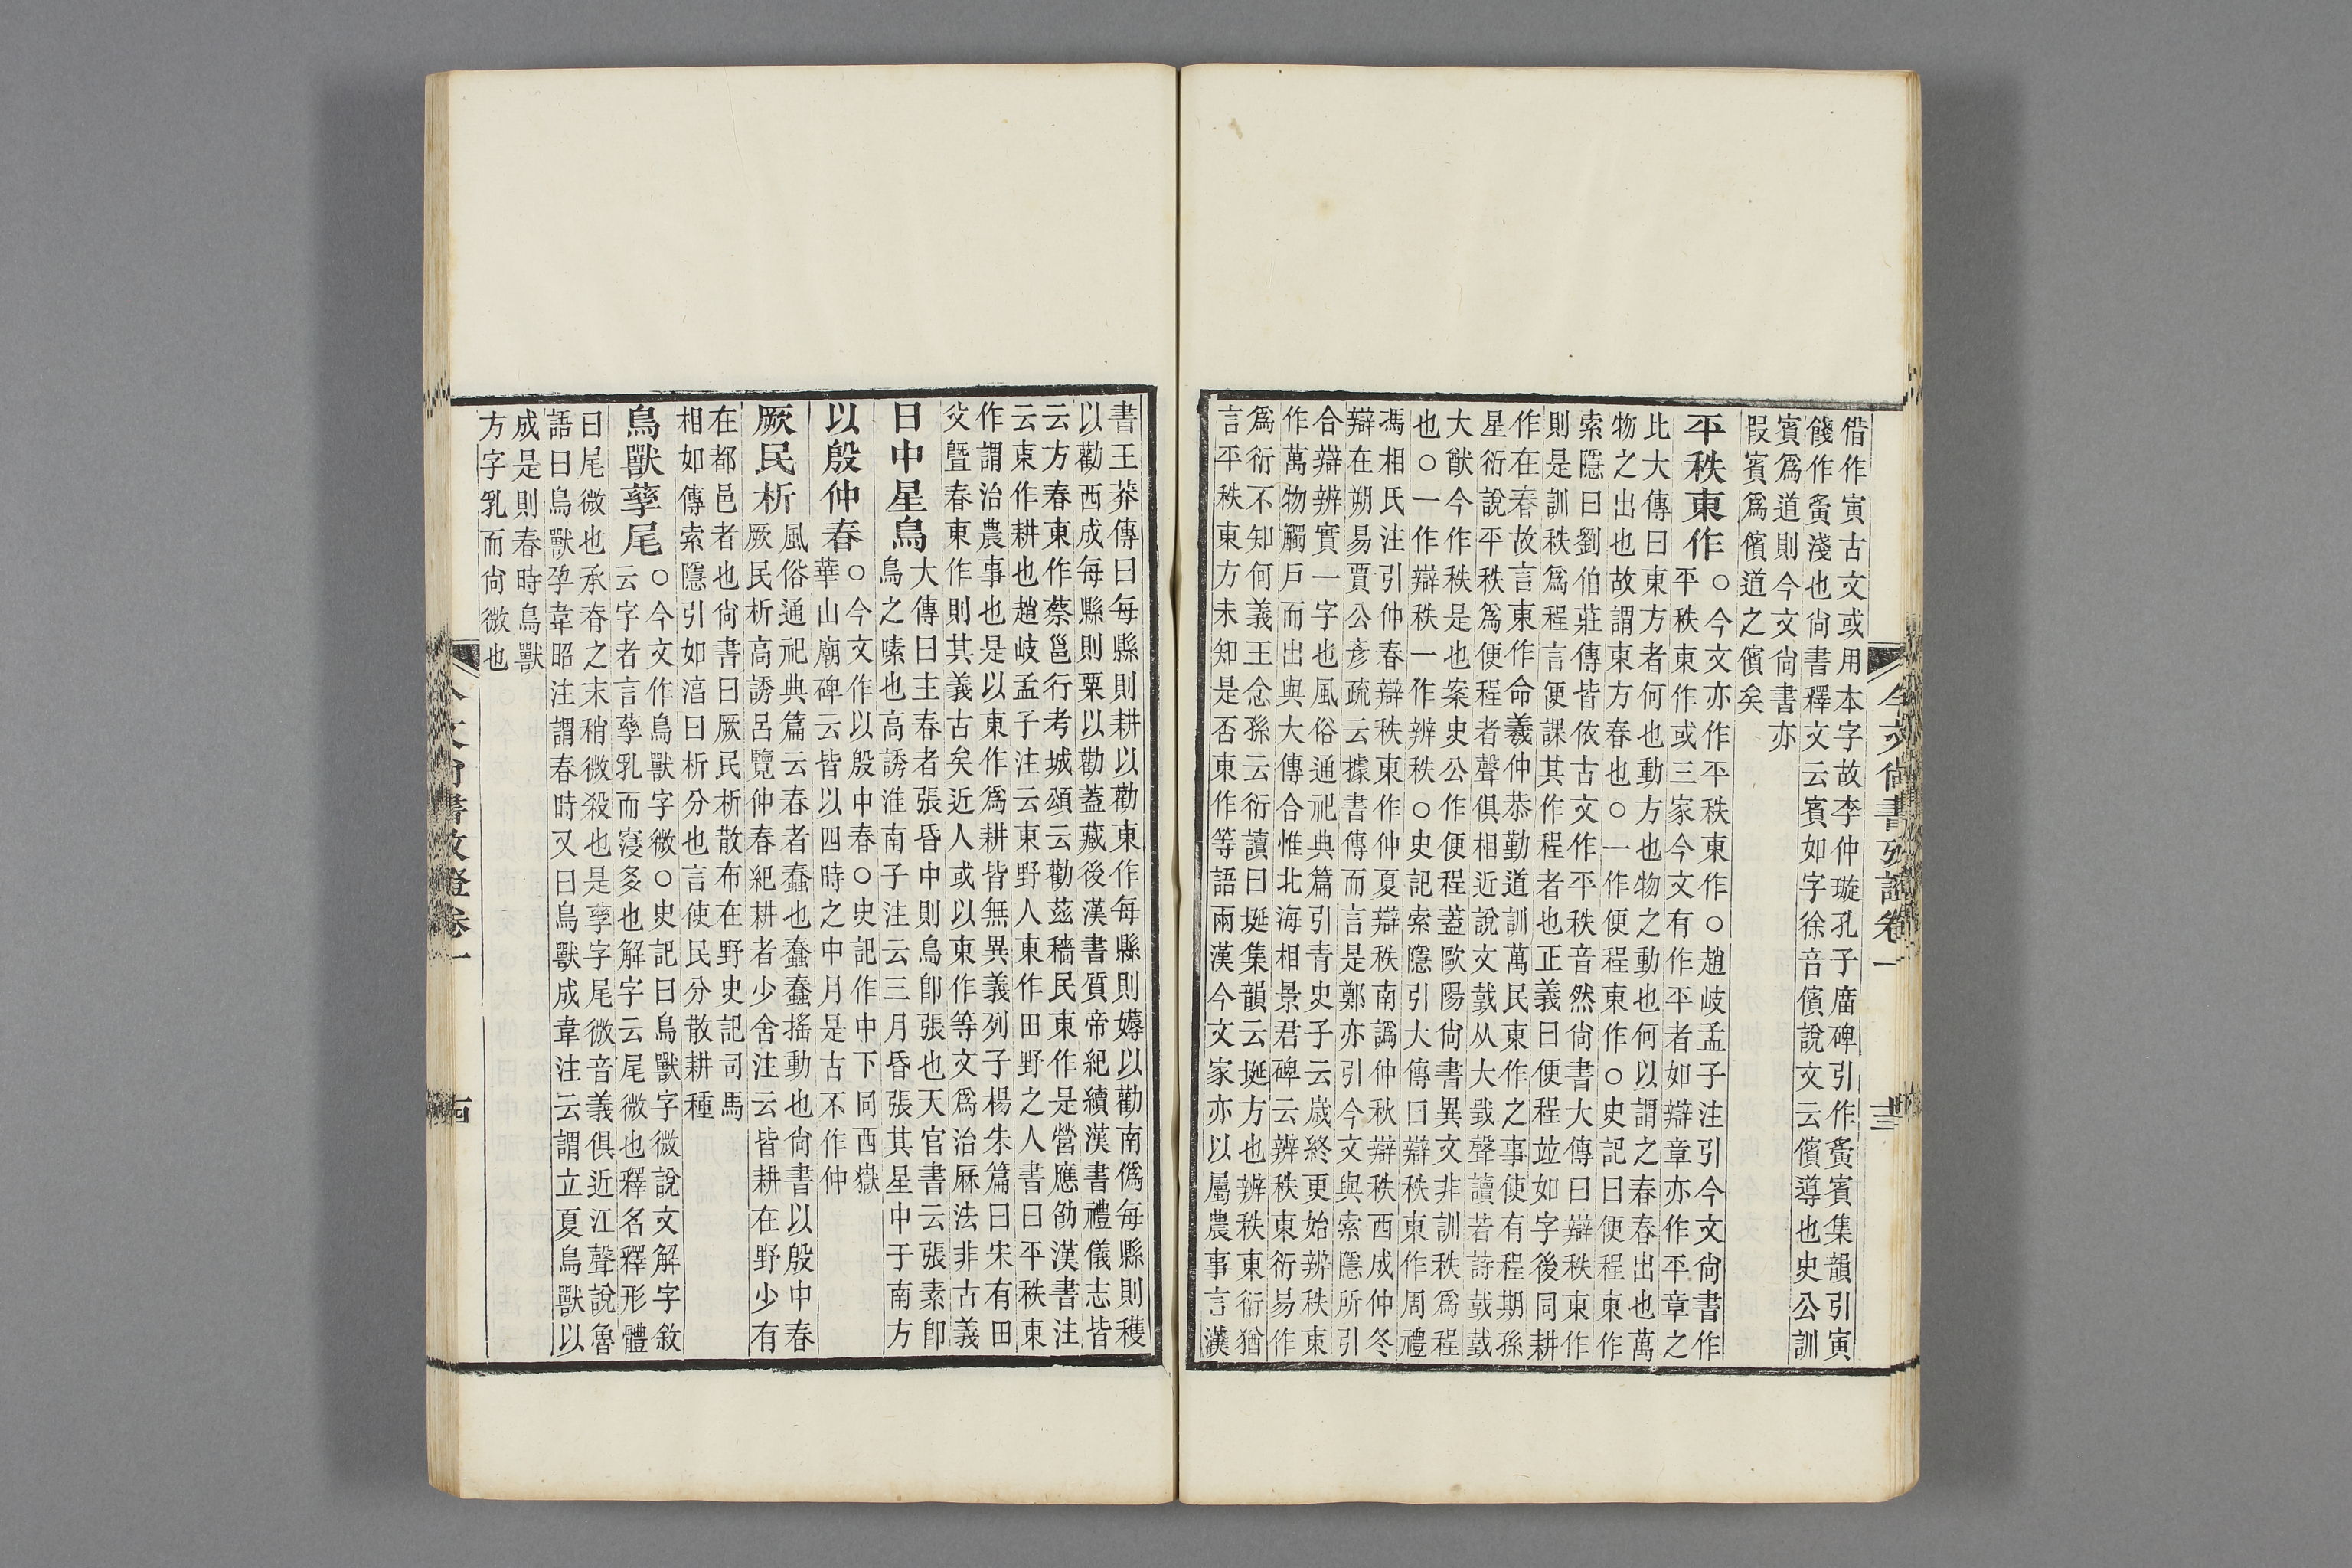 借作寅古文或用本字故李仲璇孔子廟碑引作夤賓集韻引寅
餞作夤淺也尙書釋文云賓如字徐音儐說文云儐導也史公訓
賓爲道則今文尙書亦
叚賓爲儐道之儐矣
平秩東作
○今文亦作平秩東作○趙岐孟子注引今文尙書作
平秩東作或三家今文有作平者如辯章亦作平章之
比大傳曰東方者何也動方也物之動也何以謂之春春出也萬
物之出也故謂東方春也○一作便程東作○史記曰便程東作
索隱曰劉伯莊傳皆依古文作平秩音然尙書大傳曰辯秩東作
則是訓秩爲程言便課其作程者也正義曰便程竝如字後同耕
作在春故言東作命羲仲恭勤道訓萬民東作之事使有程期孫
星衍說平秩爲便程者聲俱相近說文㦳从大𢧜聲讀若詩㦳㦳
大猷今作秩是也案史公作便程蓋歐陽尙書異文非訓秩爲程
也○一作辯秩一作辨秩○史記索隱引大傳曰辯秩東作周禮
馮相氏注引仲春辯秩東作仲夏辯秩南譌仲秋辯秩西成仲冬
辯在朔易賈公彥疏云據書傳而言是鄭亦引今文與索隱所引
合辯辨實一字也風俗通祀典篇引青史子云歲終更始辨秩東
作萬物觸戸而出與大傳合惟北海相景君碑云辨秩東衍易作
爲衍不知何義王念孫云衍讀曰埏集韻云埏方也辨秩東衍猶
言平秩東方未知是否東作等語兩漢今文家亦以屬農事言漢
今文尙書攷證卷一
十三
書王莽傳曰每縣則耕以勸東作每縣則薅以勸南僞每縣則穫
以勸西成每縣則粟以勸蓋藏後漢書質帝紀續漢書禮儀志皆
云方春東作蔡邕行考城頌云勸茲穡民東作是營應劭漢書注
云東作耕也趙岐孟子注云東野人東作田野之人書曰平秩東
作謂治農事也是以東作爲耕皆無異義列子楊朱篇曰宋有田
父曁春東作則其義古矣近人或以東作等文爲治厤法非古義
日中星鳥
大傳曰主春者張昏中則鳥卽張也天官書云張素卽
鳥之嗉也高誘淮南子注云三月昏張其星中于南方
以殷仲春
○今文作以殷中春○史記作中下同西嶽
華山廟碑云皆以四時之中月是古不作仲
厥民析
風俗通祀典篇云春者蠢也蠢蠢搖動也尙書以殷中春
厥民析高誘呂覽仲春紀耕者少舍注云皆耕在野少有
在都邑者也尙書曰厥民析散布在野史記司馬
相如傳索隱引如湻曰析分也言使民分散耕種
鳥獸孳尾
○今文作鳥獸字微○史記曰鳥獸字微說文解字敘
云字者言孳乳而寖多也解字云尾微也釋名釋形體
曰尾微也承脊之末稍微殺也是孳字尾微音義俱近江聲說魯
語曰鳥獸孕韋昭注謂春時又曰鳥獸成韋注云謂立夏鳥獸以
成是則春時鳥獸
方字乳而尙微也
今文尙書攷證卷一
十四